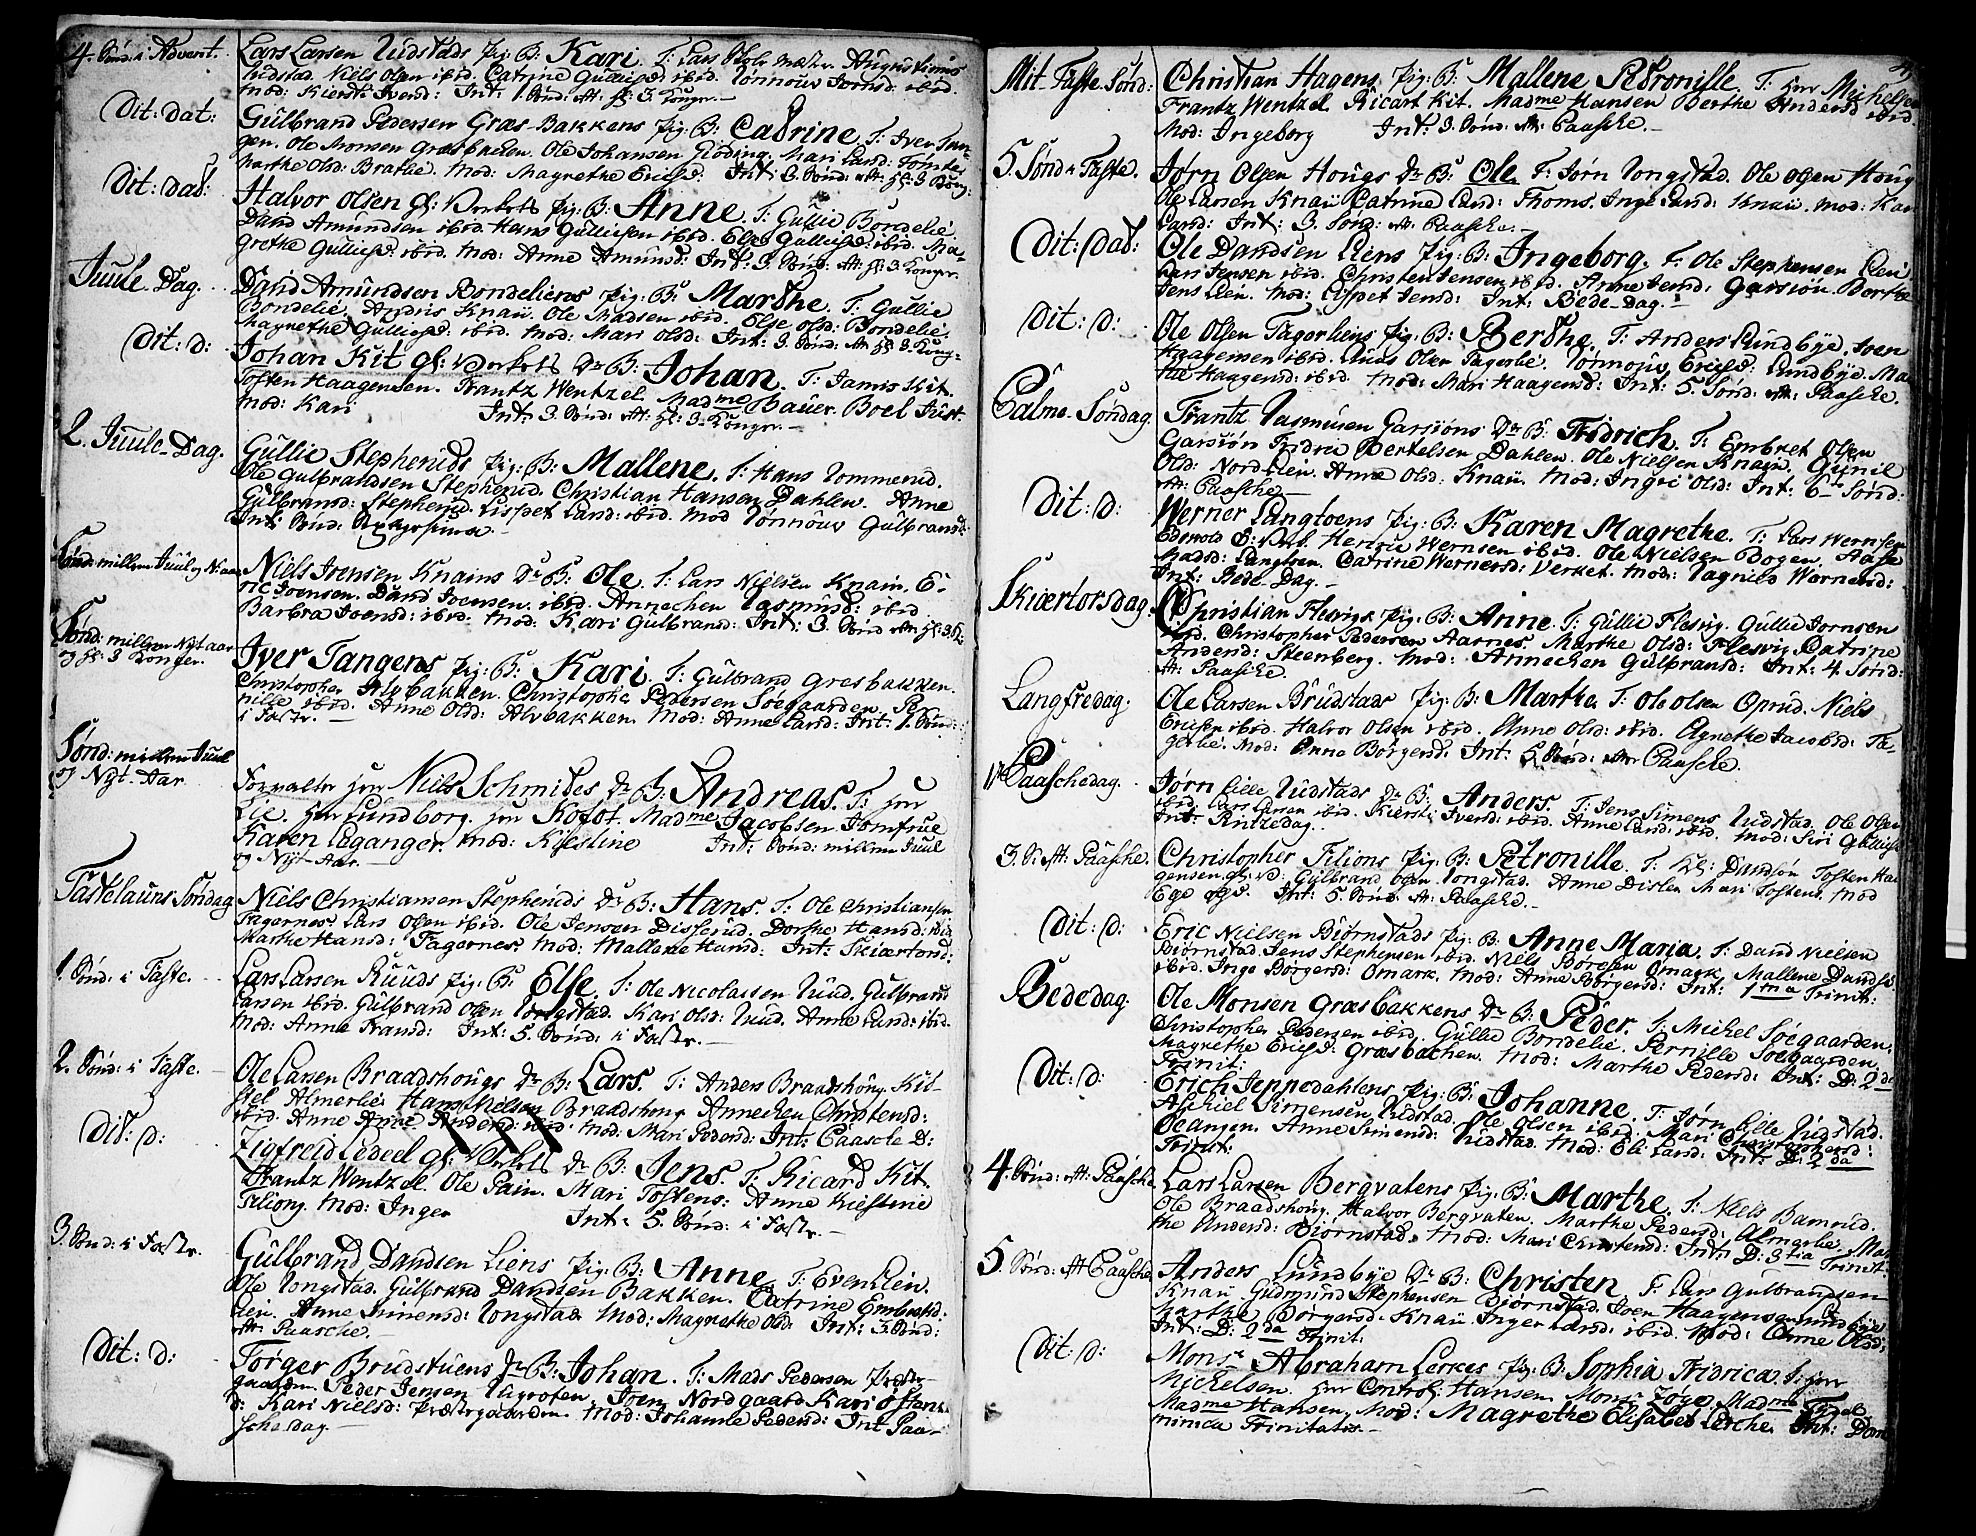 4. Sønd: i Advent. Lars Larsen Rudstads Pig: B: Kari. F: Lars Skolemæster
Rudstad. Niels Olsen ibid. Catrine Gulliesd: ibid. Rønnouv Jornsd: ibid.
Mod: Kiersti Ivensd: Int: 1. Sønd: Att: hl: 3. Konger.—
Dit: Dat: Gulbrand Pedersen Græs-Bakkens Pig: B: Catrine. F: Iver Tan-
gen. Ole Monsen Græsbacken. Ole Johansen Mari Larsd:
Marthe Olsd: Brathe. Mod: Magrethe Ericsd: Int: 3. Sønd: Att: hl: 3 Kong:
Dit: Dat: Halvor Olsen gl: Verkets Pig: B: Anne. F: Gullie Bondelie.
David Amundsen ibid. Hans Gulliesen ibid. Else Gulliesd: ibid. Ma-
grethe Gulliesd: ibid. Mod: Anne Amunsd: Int: 3. Sønd: Att: hl: 3. Konger.
Juule-Dag. David Amundsen Bondeliens Pig: B: Marthe. F: Gullie
Bondelie. Andris Knaii. Ole Madsen ibid. Else Olsd: Bondelie.
Magnethe Gulliesd: ibid. Mod: Mari Olsd: Int: 3. Sønd: Att: hl: 3. Kong-
Dit: D: Johan Kit gl: Verkets Dr: B: Johan. F: Jamis Kit.
Tosten Haagensen. Frantz Wentzel. Madme Bauer. Boel Just.
Mod: Kari Int: 3. Sønd: Att: hl: 3. Konger.—
2. Juule-Dag. Gullie Stepheruds Pig: B: Mallene. F: Hans Rommerud.
Ole Gulbrandsen Stepherud. Christian Hansen Dahlen. Anne
Gulbransd: Stepherud. Lispet Larsd: ibid. Mod Rønnouv Gulbransd:
Int: Sønd:
Sønd: millem Juul og N: aar Niels Ivensen Knains Dr: B: Ole. F: Lars Nielsen Knain. E-
ric Ivensen. David Ivensen. ibid. Annechen Rasmusd: ibid
Barbra Ivensd: ibid. Mod: Kari Gulbransd: Int: 3. Sønd Att: hl: 3. K:
Sønd: millem Nyt aar
og hl: 3 Konger. Iver Tangens Pig: B: Kari. F: Gulbrand Græsbakken.
Christopher Alvbakken. Christopher Pedersen Søegaarden. Per-
nille ibid. Anne Olsd: Alvbakken. Mod: Anne Larsd: Int: 1. Sønd:
i Faste.—
Sønd: millem Juul
og Nyt-Aar Forvalter Herr Niels Schmides Dr: B: Andreas. F: Herr
Lie. Herr Lundborg. Herr Kofot. Madme Jacobsen Jomfrue
Karen Leganger. Mod: Kiestine Int: Sønd: millem Juul
og Nyt-Aar.—
Fastelauns Søndag Niels Christiansen Stepheruds Dr: B: Hans. F: Ole Christiansen
Fagernes. Lars Olsen ibid. Ole Jensen Diserud. Dorthe Hansd: ibid
Marthe Hansd: Fagernes. Mod: Mallene Hansd: Int: Skiærtorsd:
1. Sønd: i Faste. Lars Larsen Ruuds Pig: B: Else. F: Ole Nicolaisen Ruud. Gulbrand
Larsen ibid. Gulbrand Olsen Rongstad. Kari Olsd: Ruud. Anne Larsd: ibid.
Mod: Anne Fransd: Int: 5. Sønd: i Faste.—
2. Sønd: i Faste. Ole Larsen Braadshougs Dr: B: Lars. F: Anders Braadshoug. Kit-
stel Almerlie. Hans Nielsen Braadshoug Annechen Christensd:
ibid. Anne Andersd: ibid. Mod: Mari Pedersd: Int: Paasche D:
Dit: D: Zigfreid Ledeel gl: Verkets Dr: B: Jens. F: Ricard Kit.
Frantz Wentzel. Ole Pain. Mari Tostens: Anne Kiestine
Filiong. Mod: Inger Int: 5. Sønd: i Faste.—
3. Sønd: i Faste. Gulbrand Davidsen Liens Pig: B: Anne. F: Even Lien.
Ole Rongstad. Gulbrand Davidsen Bakken. Catrine Embretsd:
Lien. Anne Simensd: Rongstad. Mod: Magrethe Olsd: Int: 3. Sønd:
Att: Paasche.—
Dit: D: Torger Brudstuens Dr: B: Johan. F: Mads Pedersen Præste-
gaarden. Peder Jensen Joen Nordgaard Kari
d: Kari Nielsd: Præstegaarden. Mod: Johanna Pedersd: Int Paa-
schedag.—
Mit-Faste-Sønd: Christian Hagens Pig: B: Mallene Petronille. F: Herr Michelsen
Frantz Wentzel. Ricart Kit. Madme Hansen Berthe Andersd ibid.
Mod: Ingeborg Int: 3. Sønd: Att: Paasche.—
5. Sønd i Faste. Jørn Olsen Hougs Dr: B: Ole. F: Jørn Rongstad. Ole Olsen Houg
Ole Larsen Knaii Catrine Larsd: Thoms. Inge Larsd: Knaii. Mod: Kari
Larsd: Int: 3. Sønd: Att: Paasche.—
Dit: Dat: Ole Davidsen Liens Pig: B: Ingeborg. F: Ole Stephensen Lien
Lars Jensen ibid. Christen Jensen ibid. Anne Jensd: Garsiøn. Berthe
Jens Lien. Mod: Lispet Jensd: Int: Bede-Dag.—
Dit: D: Ole Olsen Fagerliens Pig: B: Berthe. F: Anders Lundbye. Iven
Haagensen ibid. Lars Olsen Fagerlie. Rønnouv Ericsd: Lundbye. Ma-
the Haagensd: ibid. Mod: Mari Haagensd: Int: 5. Sønd: Att: Paasche.
Palme-Søndag. Frantz Rasmusen Garsiøns Dr: B: Fridrich. F: Embret Olsen
Garsiøn Fridric Bertelsen Dahlen. Ole Nielsen Knaii. Gunil
Olsd: Nordlien. Anne Olsd. Knaii. Mod: Ingri Olsd: Int: 6te Sønd:
Att: Paasche.—
Dit: D: Werner Langtoens Pig: B: Karen Magrethe. F: Lars Wernsen
Edsvold Verk. Wernsen ibid. Ole Nielsen Bogen. Aase
Madsd: Langtoen. Catrine Wernersd: Verket. Mod: Ragnild Wernersd:
Int: Bede-Dag.—
Skiærtorsdag. Christian Flesvigs Pig: B: Anne. F: Gullie Flesvig. Gullie Jornsen
ibid. Christopher Pedersen Aarnes. Marthe Olsd: Flesvig Catrine
Andersd: Steenberg. Mod: Annechen Gulbransd: Int: 4. Sønd:
Att: Paasche.
Langfredag. Ole Larsen Brudstads Pig: B: Marthe. F: Ole Olsen Oprud. Niels
Ericsen ibid. Halvor Olsen ibid. Anne Olsd: ibid. Agnethe Jacobsd: Fa-
gerlie. Mod: Anne Børgersd: Int: 5 Sønd: Att: Paasche.
1te Paaschedag. Jørn Lille Rudstads Dr: B: Anders. F: Jens Simens Rudstad. Ole Olsen
ibid. Lars Larsen ibid. Kiersti Iversd: ibid. Anne Larsd: ibid. Mod: Siri Gulliesd
Int: Pintzedag.
3. S: Att: Paasche. Christopher Filions Pig: B: Petronille. F: Davidsøn Tosten Haa
gensen. gl: V: Gulbrand Olsen Rongstad. Anne Dislen Mari Tostens. Mod
Ege Int: 5. Sønd: Att: Paasche.—
Dit: D: Eric Nielsen Biørnstads Pig: B: Anne Maria. F: David Nielsen
Biørnstad. Jens Stephensen ibid. Niels Børresen Omark. Mallene Davidsd
ibid. Inge Børgersd: Omark. Mod: Anne Børgersd: Int: 1ma Trinit:
Bededag. Ole Monsen Græsbakkens Dr: B: Peder. F: Michel Søegaarden.
Christopher Pedersen ibid. Gullie Bondelie. Pernille Søegaarden.
Magrethe Ericsd: Græsbachen. Mod: Marthe Pedersd: Int: D: 2da
Trinit:
Dit: D: Erich Jeppedahlens Pig: B: Johanne. F: Jørn Lille Rudstad.
Aschiel Simensen Rudstad. Ole Olsen ibid. Mari Christophersd:
Ocangen. Anne Simensd: Rudstad. Mod: Eli Larsd: Int: D: 2da
Trinit:
4. Sønd: Att: Paasche. Lars Larsen Bergvatens Pig: B: Marthe. F: Niels Bamrud.
Ole Braadshoug. Halvor Bergvaten. Marthe Pedersd: Almerlie. Mar-
the Andersd: Biørnstad. Mod: Mari Christensd: Int: D: 3tia Trinit:
5. Sønd: Att Paasche Anders Lundbye Dr: B: Christen F: Lars Gulbrandsen
Knaii Gudmund Stephensen Biørnstad. Iven Haagensen Lundbye
Marthe Børgersd: Knaii Inger Larsd: ibid. Mod: Anne Olsd:
Int: D: 2da Trinit:
Dit: D: Monsr Abraham Lerkes Pig: B: Sophia Fridrica. F: Herr
Michelsen. Herr Control: Hansen. Monsr Madme
Madme Hansen. Mod: Magrethe Elisabet Lerche. Int: Dom
minica Trinitatis.—